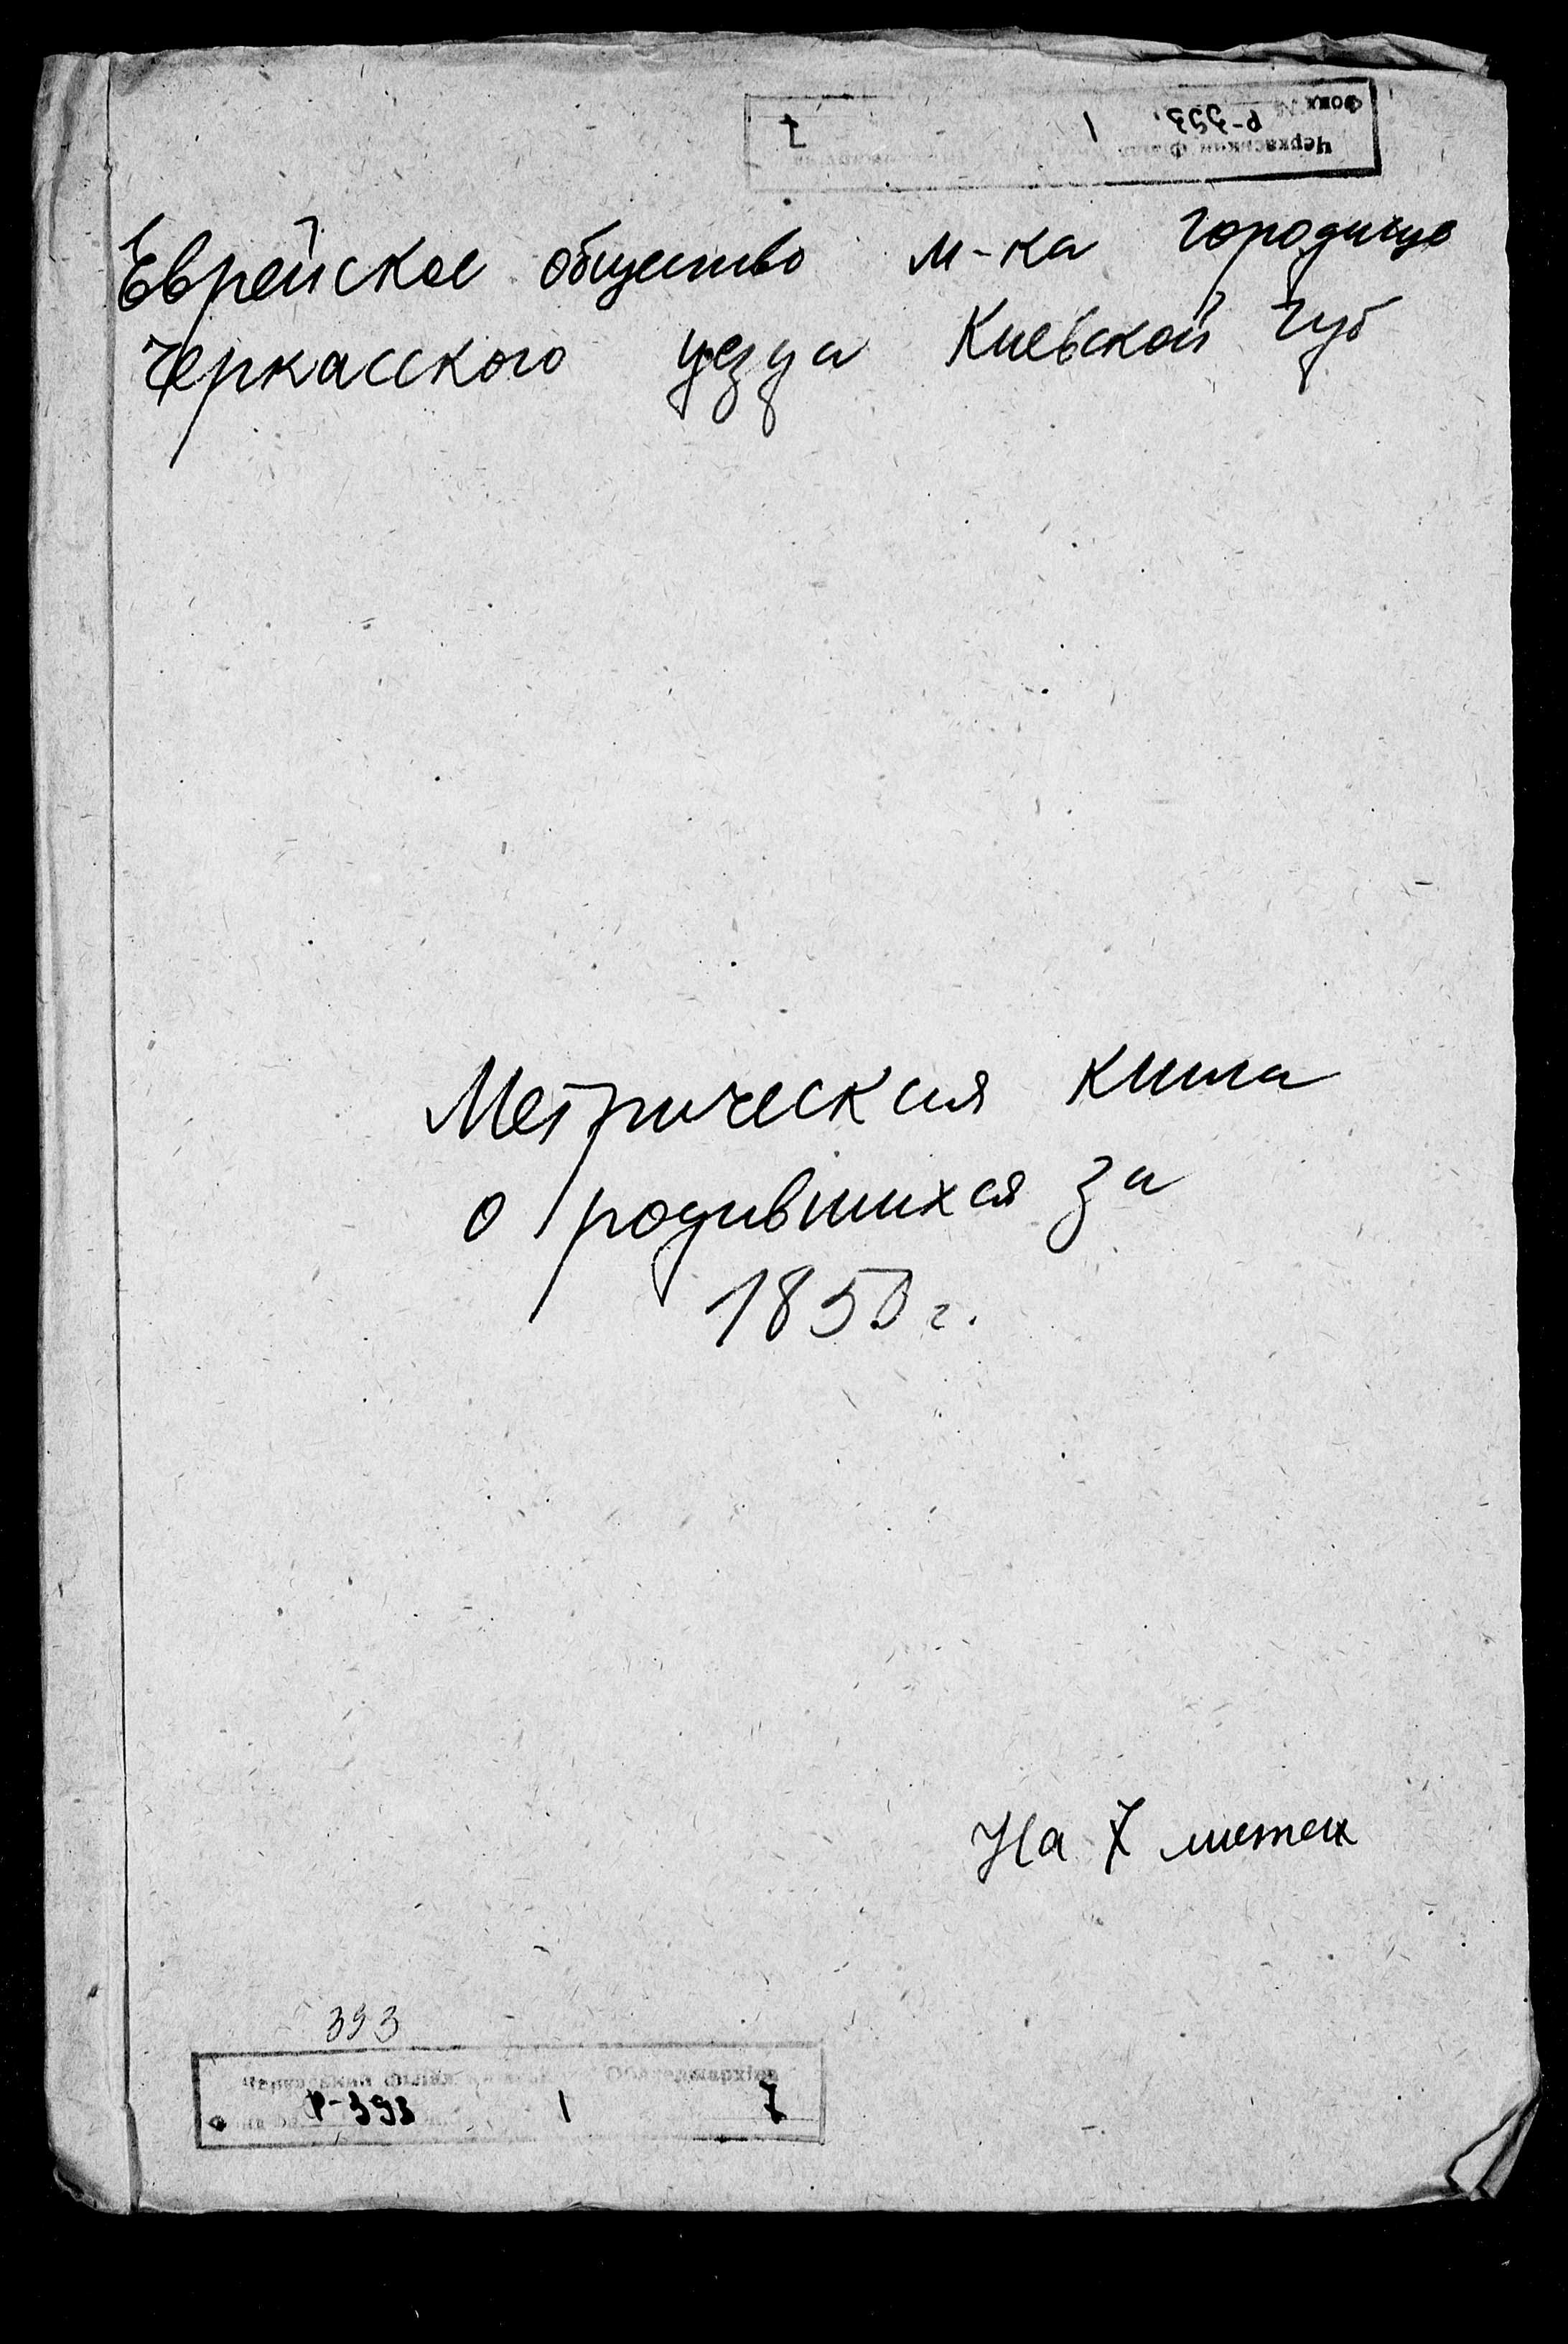 Черкаський
Фонд Р-393 1 7
Еврейское общество м-ка Городище
Черкасского уезда Киевской губ
Метрическая книга
о родившихся за
1850 г.
На 7 листах
393
Черкаський філіал Облдержархіва
Р-393 1 7